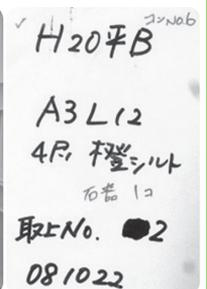 コンNo.6
H20平B
A3L12
4尺 橙シルト
石器 1コ
取上No. 2
081022